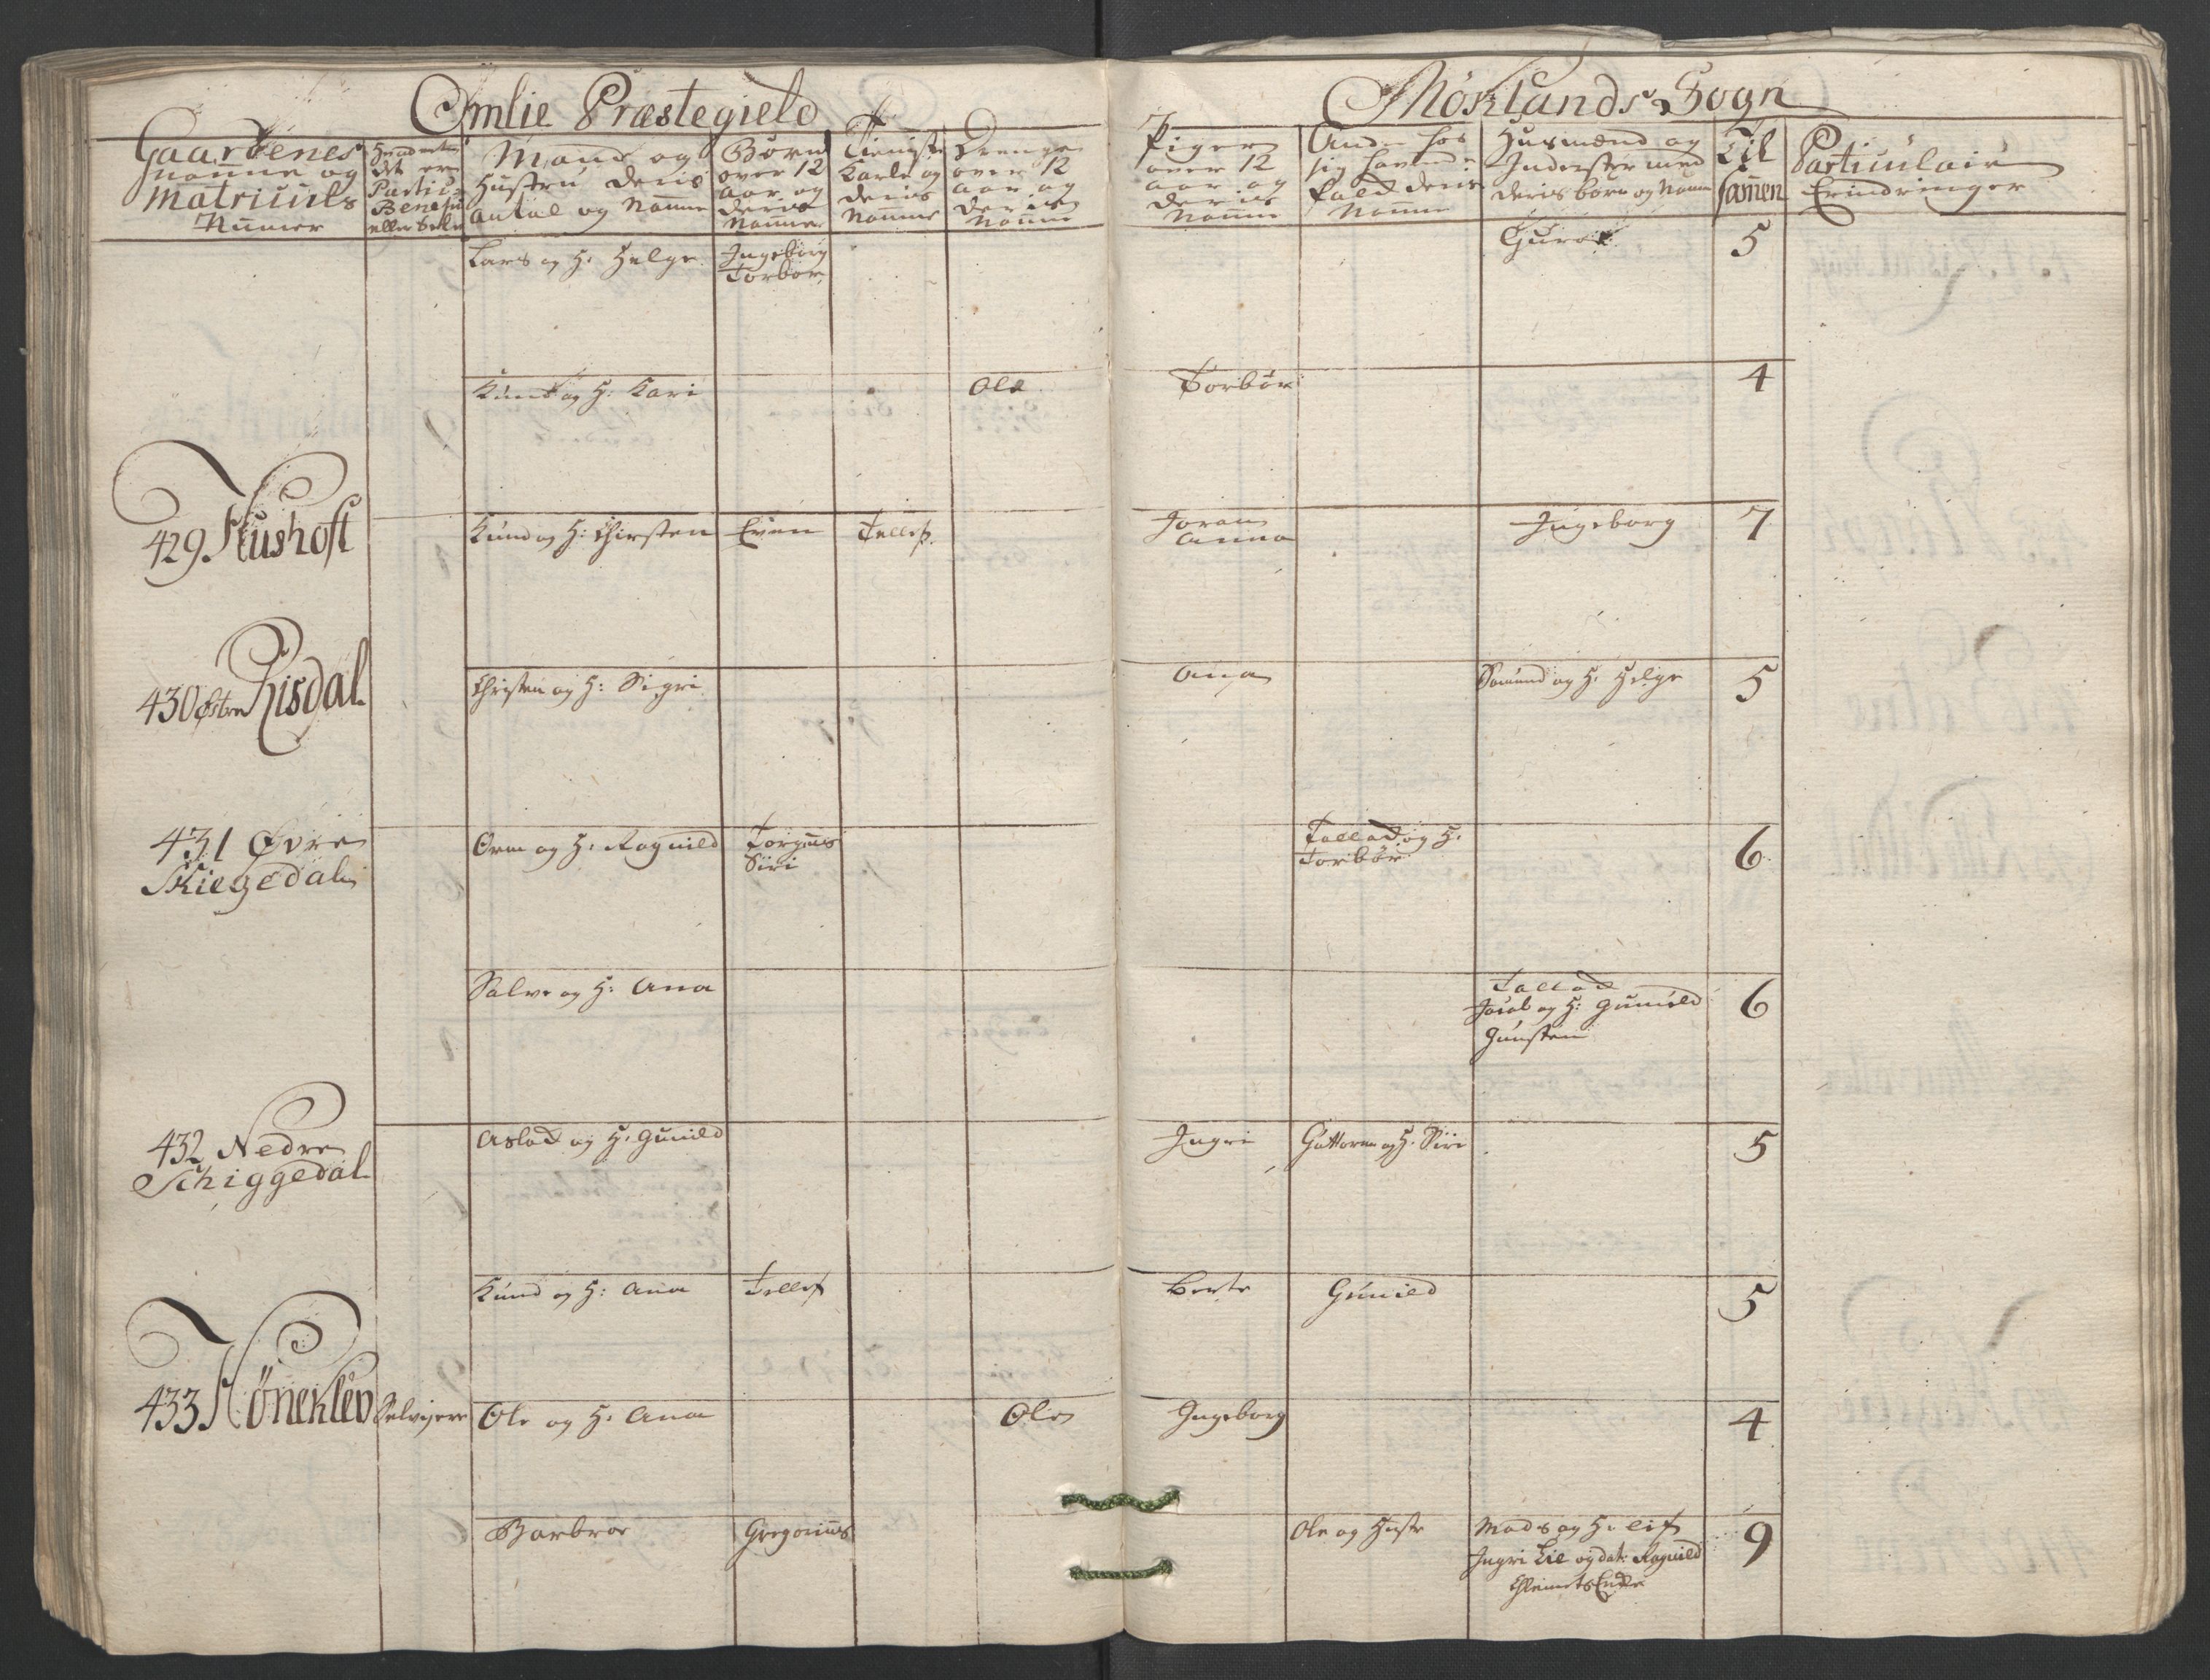 Omlie Præstegield
Møklands Sogn
Gaardenes
Nafne og
Matriculs
Numer
det er
Partic:
Benefic
Mand og
Hustru deris
Antal og Nafne
Børn
over 12
aar og
deris
Nafne
Tieniste
Karle og
deris
Nafne
Drenge
over 12
aar og
deris
Nafne
Piger
over 12
aar og
deris
Nafne
hos
sig havende
Fold deris
Nafne
Husmænd og
Inderster med
deris børn og Nafne
Til
samen
Particulaire
Erindringer
Lars og H: Helge
Ingeborg
Torbor
Guro
5
Knud og H: Kari
Ole
Torbør
4
429 Hushoft
Knud og H: Chirsten
Even
Tellef
Joran
Anna
Ingeborg
7
430 Østre Risdal
Christen og H: Sigri
Ana
Samund og H: Helge
5
431 Øvre
Skiegedal
Orm og H: Ragnild
Torgius
Siri
Tallad og H:
Torbør
6
Salve og H: Ana
Tallad
Jacob og H: Gunnild
Gunsten
6
432 Nedre
Schiggedal
Aslad og H: Gunild
Ingri
Guttorm og H: Siri
5
Knud og H: Ana
Tellef
Berte
Gunild
5
433 Høneklev
Selvejere
Ole og H: Ana
Ole
Ingeborg
4
Barbroe
Gregorius
Ole og Hustr
Mads og H: Elif
Ingri Lie og dat: Ragnild
9